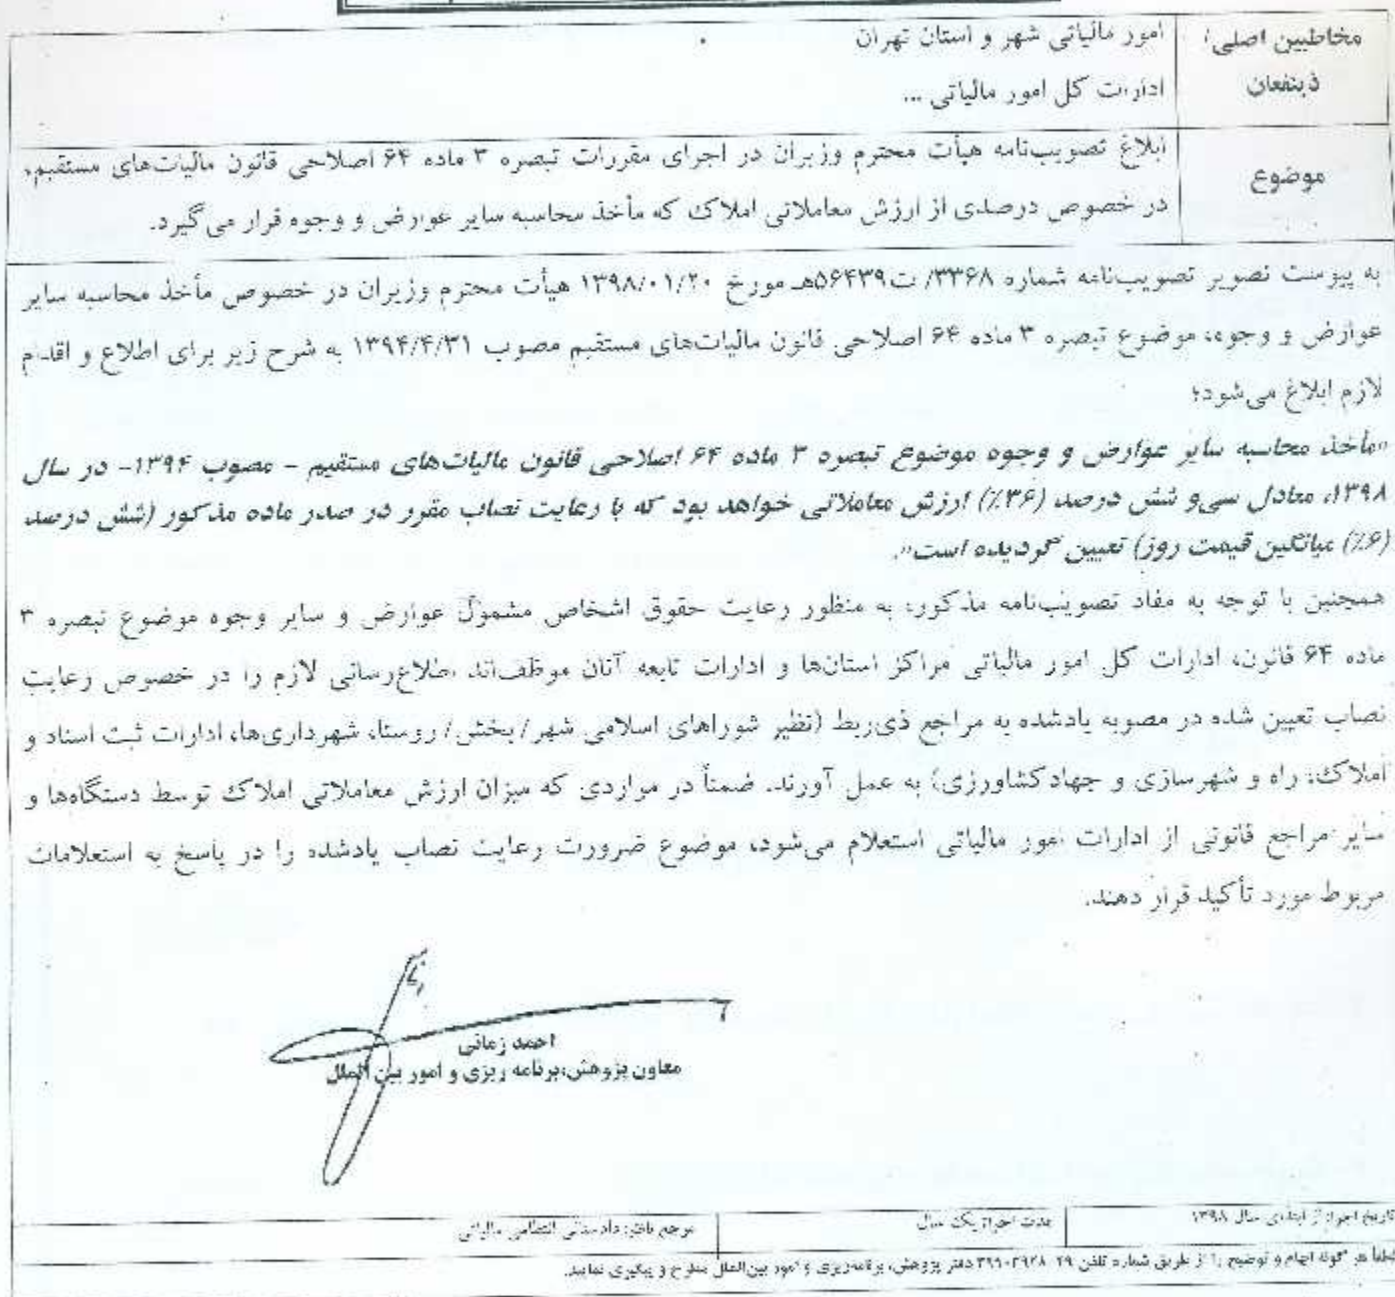 مخاطبین اصلی/
ذینفعان
امور مالیاتی شهر و استان تهران
ادارات کل امور مالیاتی ...
موضوع
ابلاغ تصویب‌نامه هیأت محترم وزیران در اجرای مقررات تبصره ۳ ماده ۶۴ اصلاحی قانون مالیات‌های مستقیم،
در خصوص درصدی از ارزش معاملاتی املاک که مأخذ محاسبه سایر عوارض و وجوه قرار می گیرد.
به پیوست تصویر تصویب‌نامه شماره ۳۳۶۸/ت۵۶۴۳۹هـ مورخ ۱۳۹۸/۰۱/۲۰ هیأت محترم وزیران در خصوص مأخذ محاسبه سایر
عوارض و وجوه، موضوع تبصره ۳ ماده ۶۴ اصلاحی قانون مالیات‌های مستقیم مصوب ۱۳۹۴/۴/۳۱ به شرح زیر برای اطلاع و اقدام
لازم ابلاغ می‌شود؛
«مأخذ محاسبه سایر عوارض و وجوه موضوع تبصره ۳ ماده ۶۴ اصلاحی قانون مالیات‌های مستقیم – مصوب ۱۳۹۴- در سال
۱۳۹۸، معادل سی‌و شش درصد (۳۶٪) ارزش معاملاتی خواهد بود که با رعایت نصاب مقرر در صدر ماده مذکور (شش درصد
(۶٪) میانگین قیمت روز) تعیین گردیده است».
همچنین با توجه به مفاد تصویب‌نامه مذکور، به منظور رعایت حقوق اشخاص مشمول عوارض و سایر وجوه موضوع تبصره ۳
ماده ۶۴ قانون، ادارات کل امور مالیاتی مراکز استان‌ها و ادارات تابعه آنان موظف‌اند اطلاع‌رسانی لازم را در خصوص رعایت
نصاب تعیین شده در مصوبه یادشده به مراجع ذی‌ربط (نظیر شوراهای اسلامی شهر/ بخش/ روستا، شهرداری‌ها، ادارات ثبت اسناد و
املاک، راه و شهرسازی و جهاد کشاورزی) به عمل آورند. ضمناً در مواردی که میزان ارزش معاملاتی املاک توسط دستگاه‌ها و
سایر مراجع قانونی از ادارات امور مالیاتی استعلام می‌شود، موضوع ضرورت رعایت نصاب یادشده را در پاسخ به استعلامات
مربوط مورد تأکید قرار دهند.
احمد زمانی
معاون پژوهش،برنامه ریزی و امور بین الملل
تاریخ اجرا: از ابتدای سال ۱۳۹۸
مدت اجرا: یک سال
مرجع ناظر: دادستانی انتظامی مالیاتی
لطفاً هر گونه ابهام و توضیح را از طریق شماره تلفن ۲۹-۳۹۹۰۳۹۲۸ دفتر پژوهش، برنامه‌ریزی و امور بین‌الملل مطرح و پیگیری نمایید.